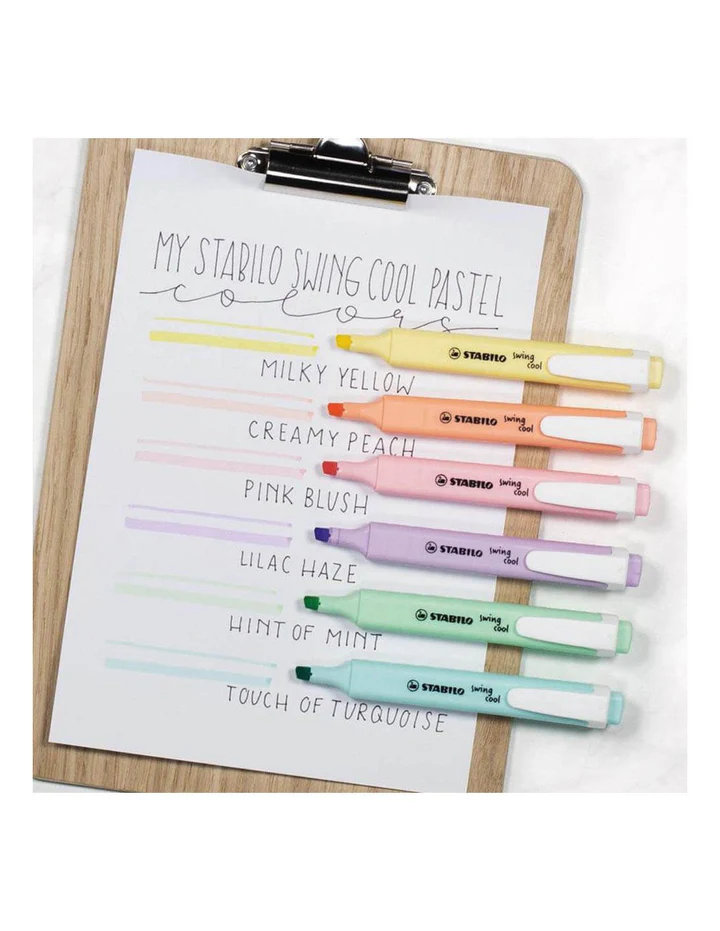 MY STABILO SWING COOL PASTEL
colors
STABILO swing cool
MILKY YELLOW
STABILO swing cool
CREAMY PEACH
STABILO swing cool
PINK BLUSH
STABILO swing cool
LILAC HAZE
STABILO swing cool
HINT OF MINT
STABILO swing cool
TOUCH OF TURQUOISE